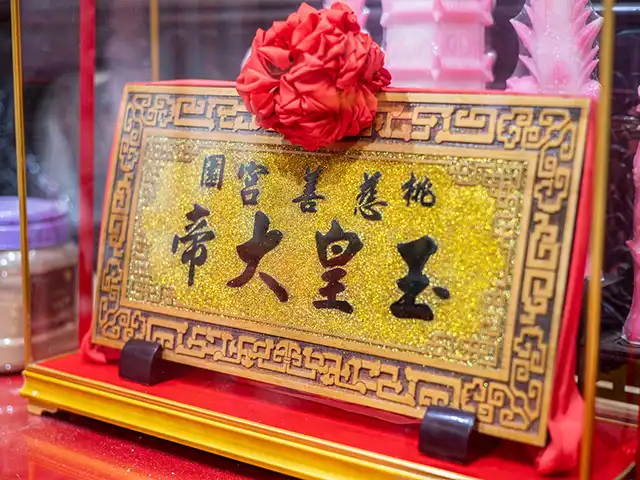 桃慈善宮園
玉皇大帝